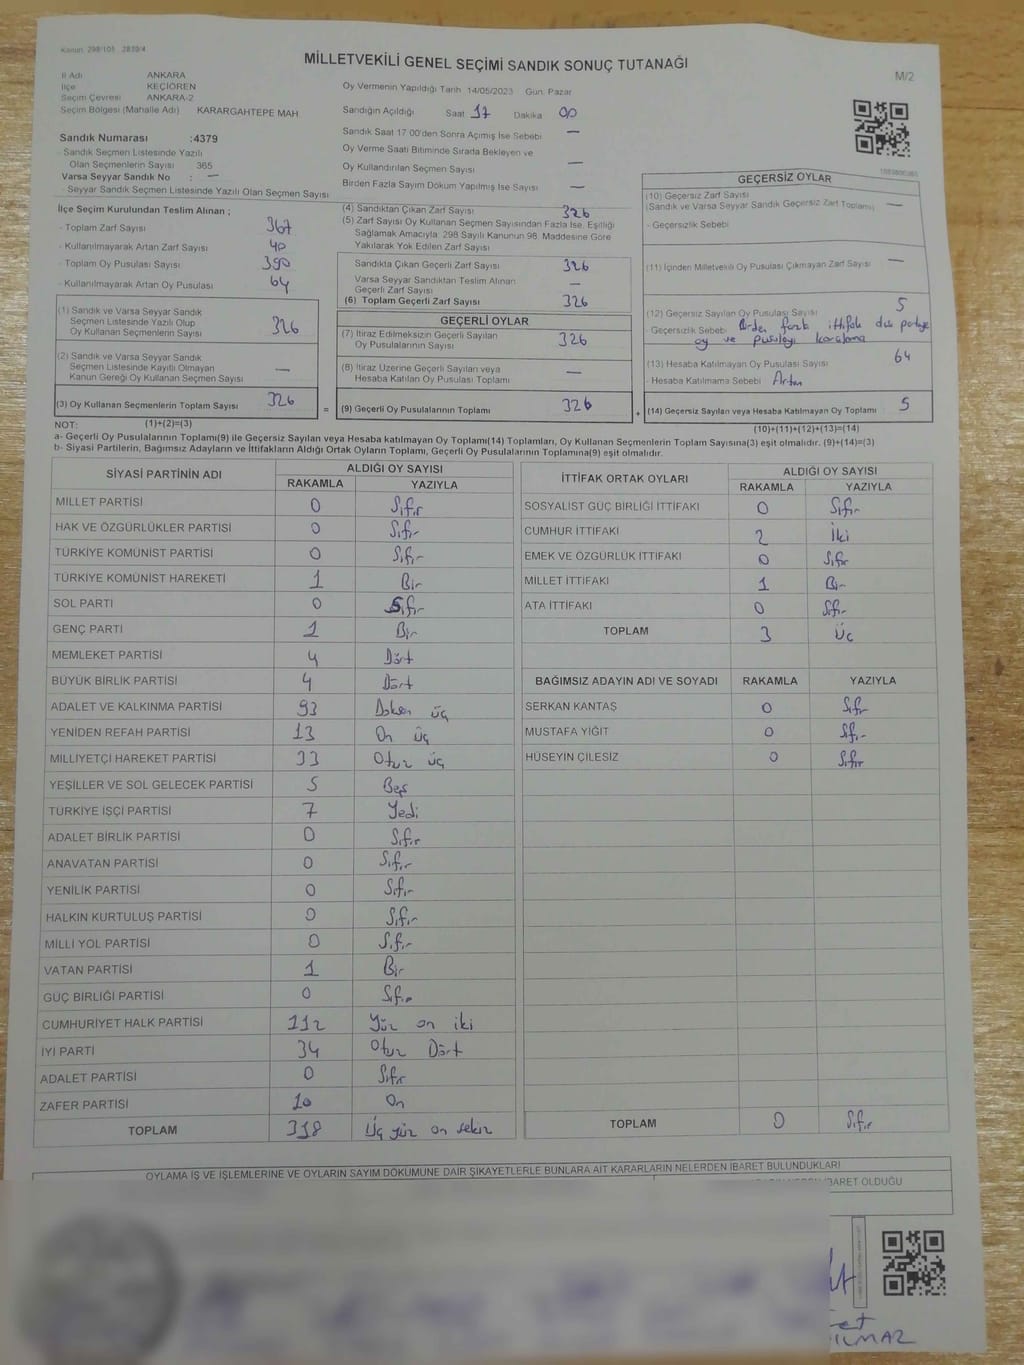 Kanun: 298/105 2839/4
MİLLETVEKİLİ GENEL SEÇİMİ SANDIK SONUÇ TUTANAĞI
M/2
İl Adı ANKARA
İlçe KEÇİÖREN
Seçim Çevresi ANKARA-2
Seçim Bölgesi (Mahalle Adı) KARARGAHTEPE MAH
Sandık Numarası :4379
- Sandık Seçmen Listesinde Yazılı
Olan Seçmenlerin Sayısı 365
Varsa Seyyar Sandık No : —
- Seyyar Sandık Seçmen Listesinde Yazılı Olan Seçmen Sayısı
Oy Vermenin Yapıldığı Tarih 14/05/2023 Gün: Pazar
Sandığın Açıldığı Saat 17 Dakika 00
Sandık Saat 17:00'den Sonra Açımış İse Sebebi —
Oy Verme Saati Bitiminde Sırada Bekleyen ve
Oy Kullandırılan Seçmen Sayısı —
Birden Fazla Sayım Döküm Yapılmış İse Sayısı —
İlçe Seçim Kurulundan Teslim Alınan ;
- Toplam Zarf Sayısı 367
- Kullanılmayarak Artan Zarf Sayısı 40
- Toplam Oy Pusulası Sayısı 390
- Kullanılmayarak Artan Oy Pusulası 64
(1) Sandık ve Varsa Seyyar Sandık
Seçmen Listesinde Yazılı Olup
Oy Kullanan Seçmenlerin Sayısı 326
(2) Sandık ve Varsa Seyyar Sandık
Seçmen Listesinde Kayıtlı Olmayan
Kanun Gereği Oy Kullanan Seçmen Sayısı —
(3) Oy Kullanan Seçmenlerin Toplam Sayısı 326
(4) Sandıktan Çıkan Zarf Sayısı 326
(5) Zarf Sayısı Oy Kullanan Seçmen Sayısından Fazla İse, Eşitliği
Sağlamak Amacıyla, 298 Sayılı Kanunun 98. Maddesine Göre
Yakılarak Yok Edilen Zarf Sayısı
Sandıkta Çıkan Geçerli Zarf Sayısı 326
Varsa Seyyar Sandıktan Teslim Alınan
Geçerli Zarf Sayısı —
(6) Toplam Geçerli Zarf Sayısı 326
GEÇERLİ OYLAR
(7) İtiraz Edilmeksizin Geçerli Sayılan
Oy Pusulalarının Sayısı 326
(8) İtiraz Üzerine Geçerli Sayılan veya
Hesaba Katılan Oy Pusulası Toplamı —
= (9) Geçerli Oy Pusulalarının Toplamı 326
GEÇERSİZ OYLAR
(10) Geçersiz Zarf Sayısı
(Sandık ve Varsa Seyyar Sandık Geçersiz Zarf Toplamı) —
- Geçersizlik Sebebi
(11) İçinden Milletvekili Oy Pusulası Çıkmayan Zarf Sayısı —
(12) Geçersiz Sayılan Oy Pusulası Sayısı 5
- Geçersizlik Sebebi Birden fazla ittifak dışı partiye
oy ve pusulayı karalama
(13) Hesaba Katılmayan Oy Pusulası Sayısı 64
- Hesaba Katılmama Sebebi Artan
+ (14) Geçersiz Sayılan veya Hesaba Katılmayan Oy Toplamı 5
NOT: (1)+(2)=(3) (10)+(11)+(12)+(13)=(14)
a- Geçerli Oy Pusulalarının Toplamı(9) ile Geçersiz Sayılan veya Hesaba katılmayan Oy Toplamı(14) Toplamları, Oy Kullanan Seçmenlerin Toplam Sayısına(3) eşit olmalıdır. (9)+(14)=(3)
b- Siyasi Partilerin, Bağımsız Adayların ve İttifakların Aldığı Ortak Oyların Toplamı, Geçerli Oy Pusulalarının Toplamına(9) eşit olmalıdır.
SİYASİ PARTİNİN ADI ALDIĞI OY SAYISI
RAKAMLA YAZIYLA
MİLLET PARTİSİ 0 Sıfır
HAK VE ÖZGÜRLÜKLER PARTİSİ 0 Sıfır
TÜRKİYE KOMÜNİST PARTİSİ 0 Sıfır
TÜRKİYE KOMÜNİST HAREKETİ 1 Bir
SOL PARTİ 0 Sıfır
GENÇ PARTİ 1 Bir
MEMLEKET PARTİSİ 4 Dört
BÜYÜK BİRLİK PARTİSİ 4 Dört
ADALET VE KALKINMA PARTİSİ 93 Doksan üç
YENİDEN REFAH PARTİSİ 13 On üç
MİLLİYETÇİ HAREKET PARTİSİ 33 Otuz üç
YEŞİLLER VE SOL GELECEK PARTİSİ 5 Beş
TÜRKİYE İŞÇİ PARTİSİ 7 Yedi
ADALET BİRLİK PARTİSİ 0 Sıfır
ANAVATAN PARTİSİ 0 Sıfır
YENİLİK PARTİSİ 0 Sıfır
HALKIN KURTULUŞ PARTİSİ 0 Sıfır
MİLLİ YOL PARTİSİ 0 Sıfır
VATAN PARTİSİ 1 Bir
GÜÇ BİRLİĞİ PARTİSİ 0 Sıfır
CUMHURİYET HALK PARTİSİ 112 Yüz on iki
İYİ PARTİ 34 Otuz Dört
ADALET PARTİSİ 0 Sıfır
ZAFER PARTİSİ 10 On
TOPLAM 318 Üç yüz on sekiz
İTTİFAK ORTAK OYLARI ALDIĞI OY SAYISI
RAKAMLA YAZIYLA
SOSYALİST GÜÇ BİRLİĞİ İTTİFAKI 0 Sıfır
CUMHUR İTTİFAKI 2 İki
EMEK VE ÖZGÜRLÜK İTTİFAKI 0 Sıfır
MİLLET İTTİFAKI 1 Bir
ATA İTTİFAKI 0 Sıfır
TOPLAM 3 Üç
BAĞIMSIZ ADAYIN ADI VE SOYADI RAKAMLA YAZIYLA
SERKAN KANTAŞ 0 Sıfır
MUSTAFA YİĞİT 0 Sıfır
HÜSEYİN ÇİLESİZ 0 Sıfır
TOPLAM 0 Sıfır
OYLAMA İŞ VE İŞLEMLERİNE VE OYLARIN SAYIM DÖKÜMÜNE DAİR ŞİKAYETLERLE BUNLARA AİT KARARLARIN NELERDEN İBARET BULUNDUKLARI
İBARET OLDUĞU
YILMAZ